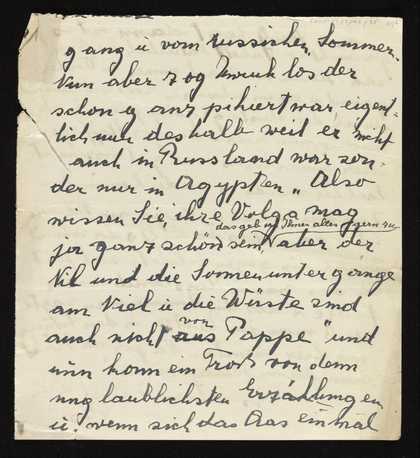 gang u vom russischen Sommer.
Nun aber zog Mruk los der
schon ganz pikiert war, eigent-
lich nur deshalb weil er nicht
auch in Russland war son-
der nur in Agypten „Also
wissen Sie, ihre Volga mag
das geb ich Ihnen aller gern zu
ja ganz schön sein, aber der
Nil und die Sonnenuntergänge
am Niel u die Wüste sind
auch nicht von Pappe" und
nun kom ein Troß von denn
unglaublichsten Erzählungen
u. wenn sich das Aas einmal